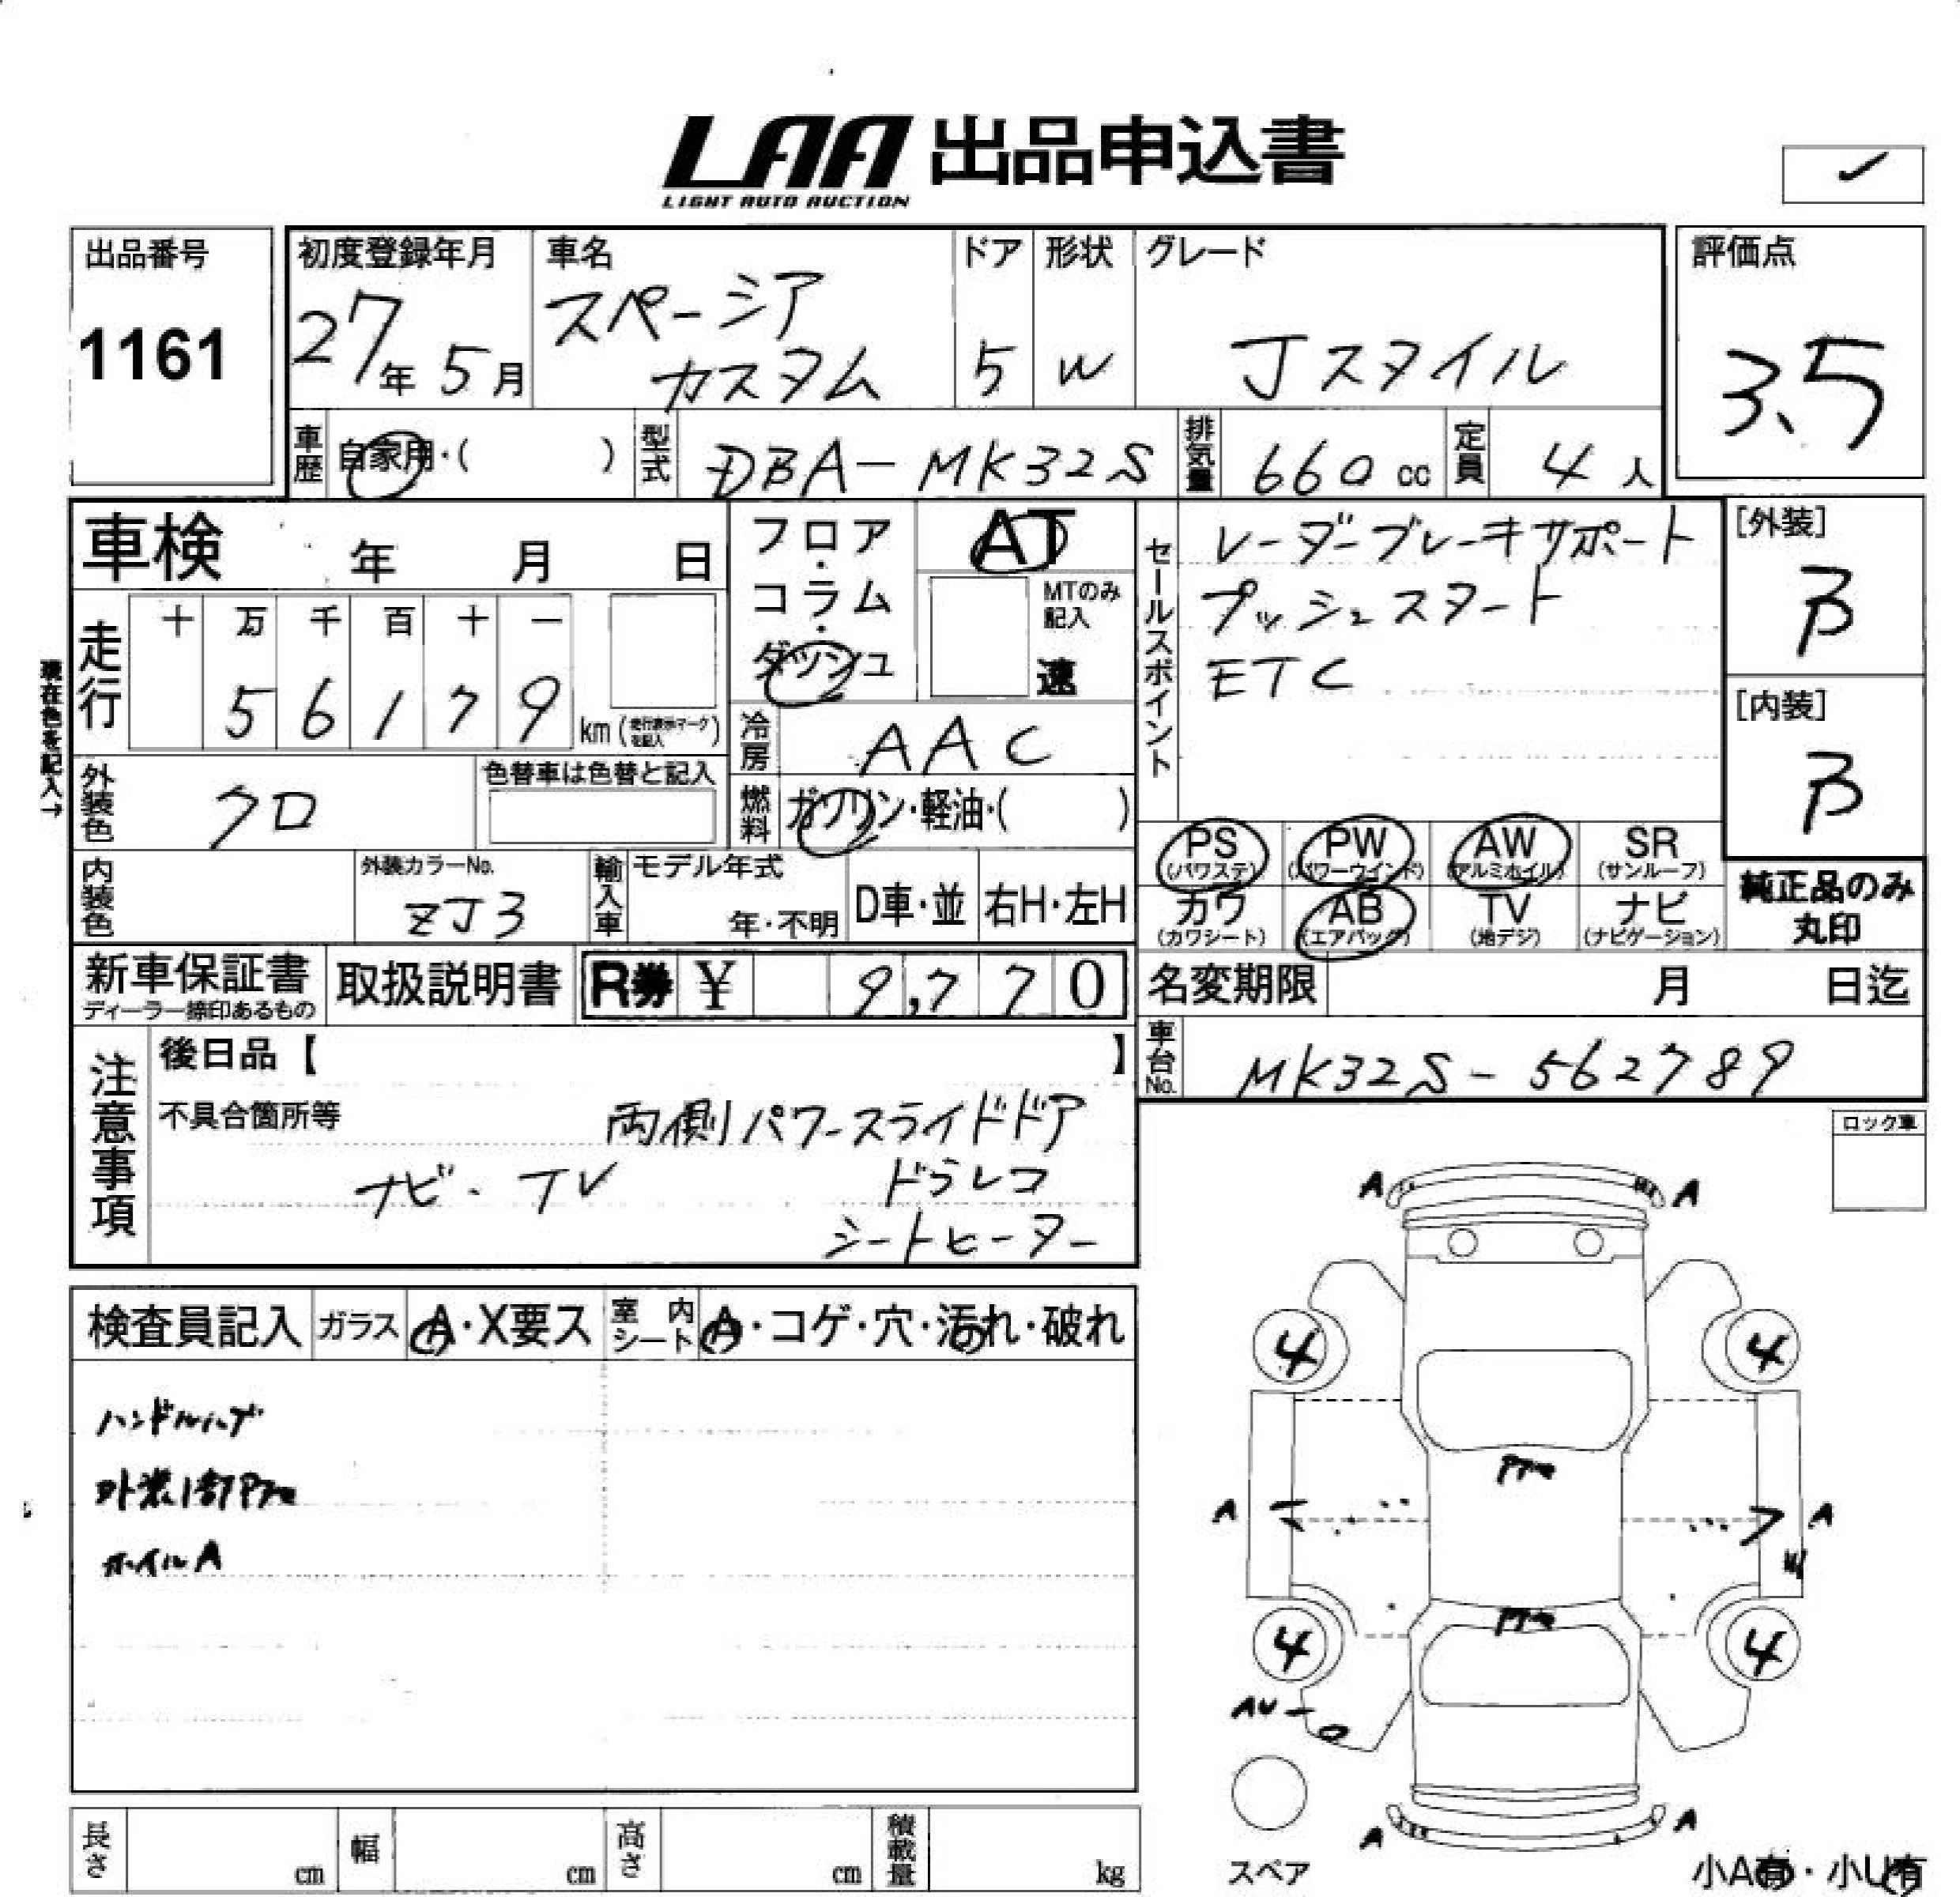 LAA 出品申込書
LIGHT AUTO AUCTION
出品番号
1161
初度登録年月
27年 5月
車名
スペーシア
カスタム
ドア
5
形状
W
グレード
Jスタイル
評価点
3.5
車歴
自家用・( )
型式
DBA-MK32S
排気量
660 cc
定員
4 人
車検 年 月 日
走行
十 万 千 百 十 一
5 6 1 7 9
km (走行表示マークを記入)
現在色を記入→
外装色
クロ
色替車は色替と記入
内装色
外装カラーNo.
ZJ3
フロア・コラム・ダッシュ
AT
MTのみ記入
速
冷房
AAC
燃料
ガソリン・軽油・( )
輸入車
モデル年式
年・不明
D車・並
右H・左H
セールスポイント
レーダーブレーキサポート
プッシュスタート
ETC
[外装]
B
[内装]
B
PS
(パワステ)
PW
(パワーウインド)
AW
(アルミホイル)
SR
(サンルーフ)
カワ
(カワシート)
AB
(エアバッグ)
TV
(地デジ)
ナビ
(ナビゲーション)
純正品のみ
丸印
新車保証書
ディーラー捺印あるもの
取扱説明書
R券 ¥ 9,770
名変期限 月 日迄
車台No.
MK32S-562789
注意事項
後日品【 】
不具合箇所等
両側パワースライドドア
ナビ・TV
ドラレコ
シートヒーター
ロック車
検査員記入
ガラス
A・X要ス
室内シート
A・コゲ・穴・汚れ・破れ
ハンドルハゲ
外装1部Pアセ
ホイルA
A A
4 4
Pアセ
A A
W
Pアセ
4 4
AU
A A
スペア
小A有・小U有
長さ cm
幅 cm
高さ cm
積載量 kg